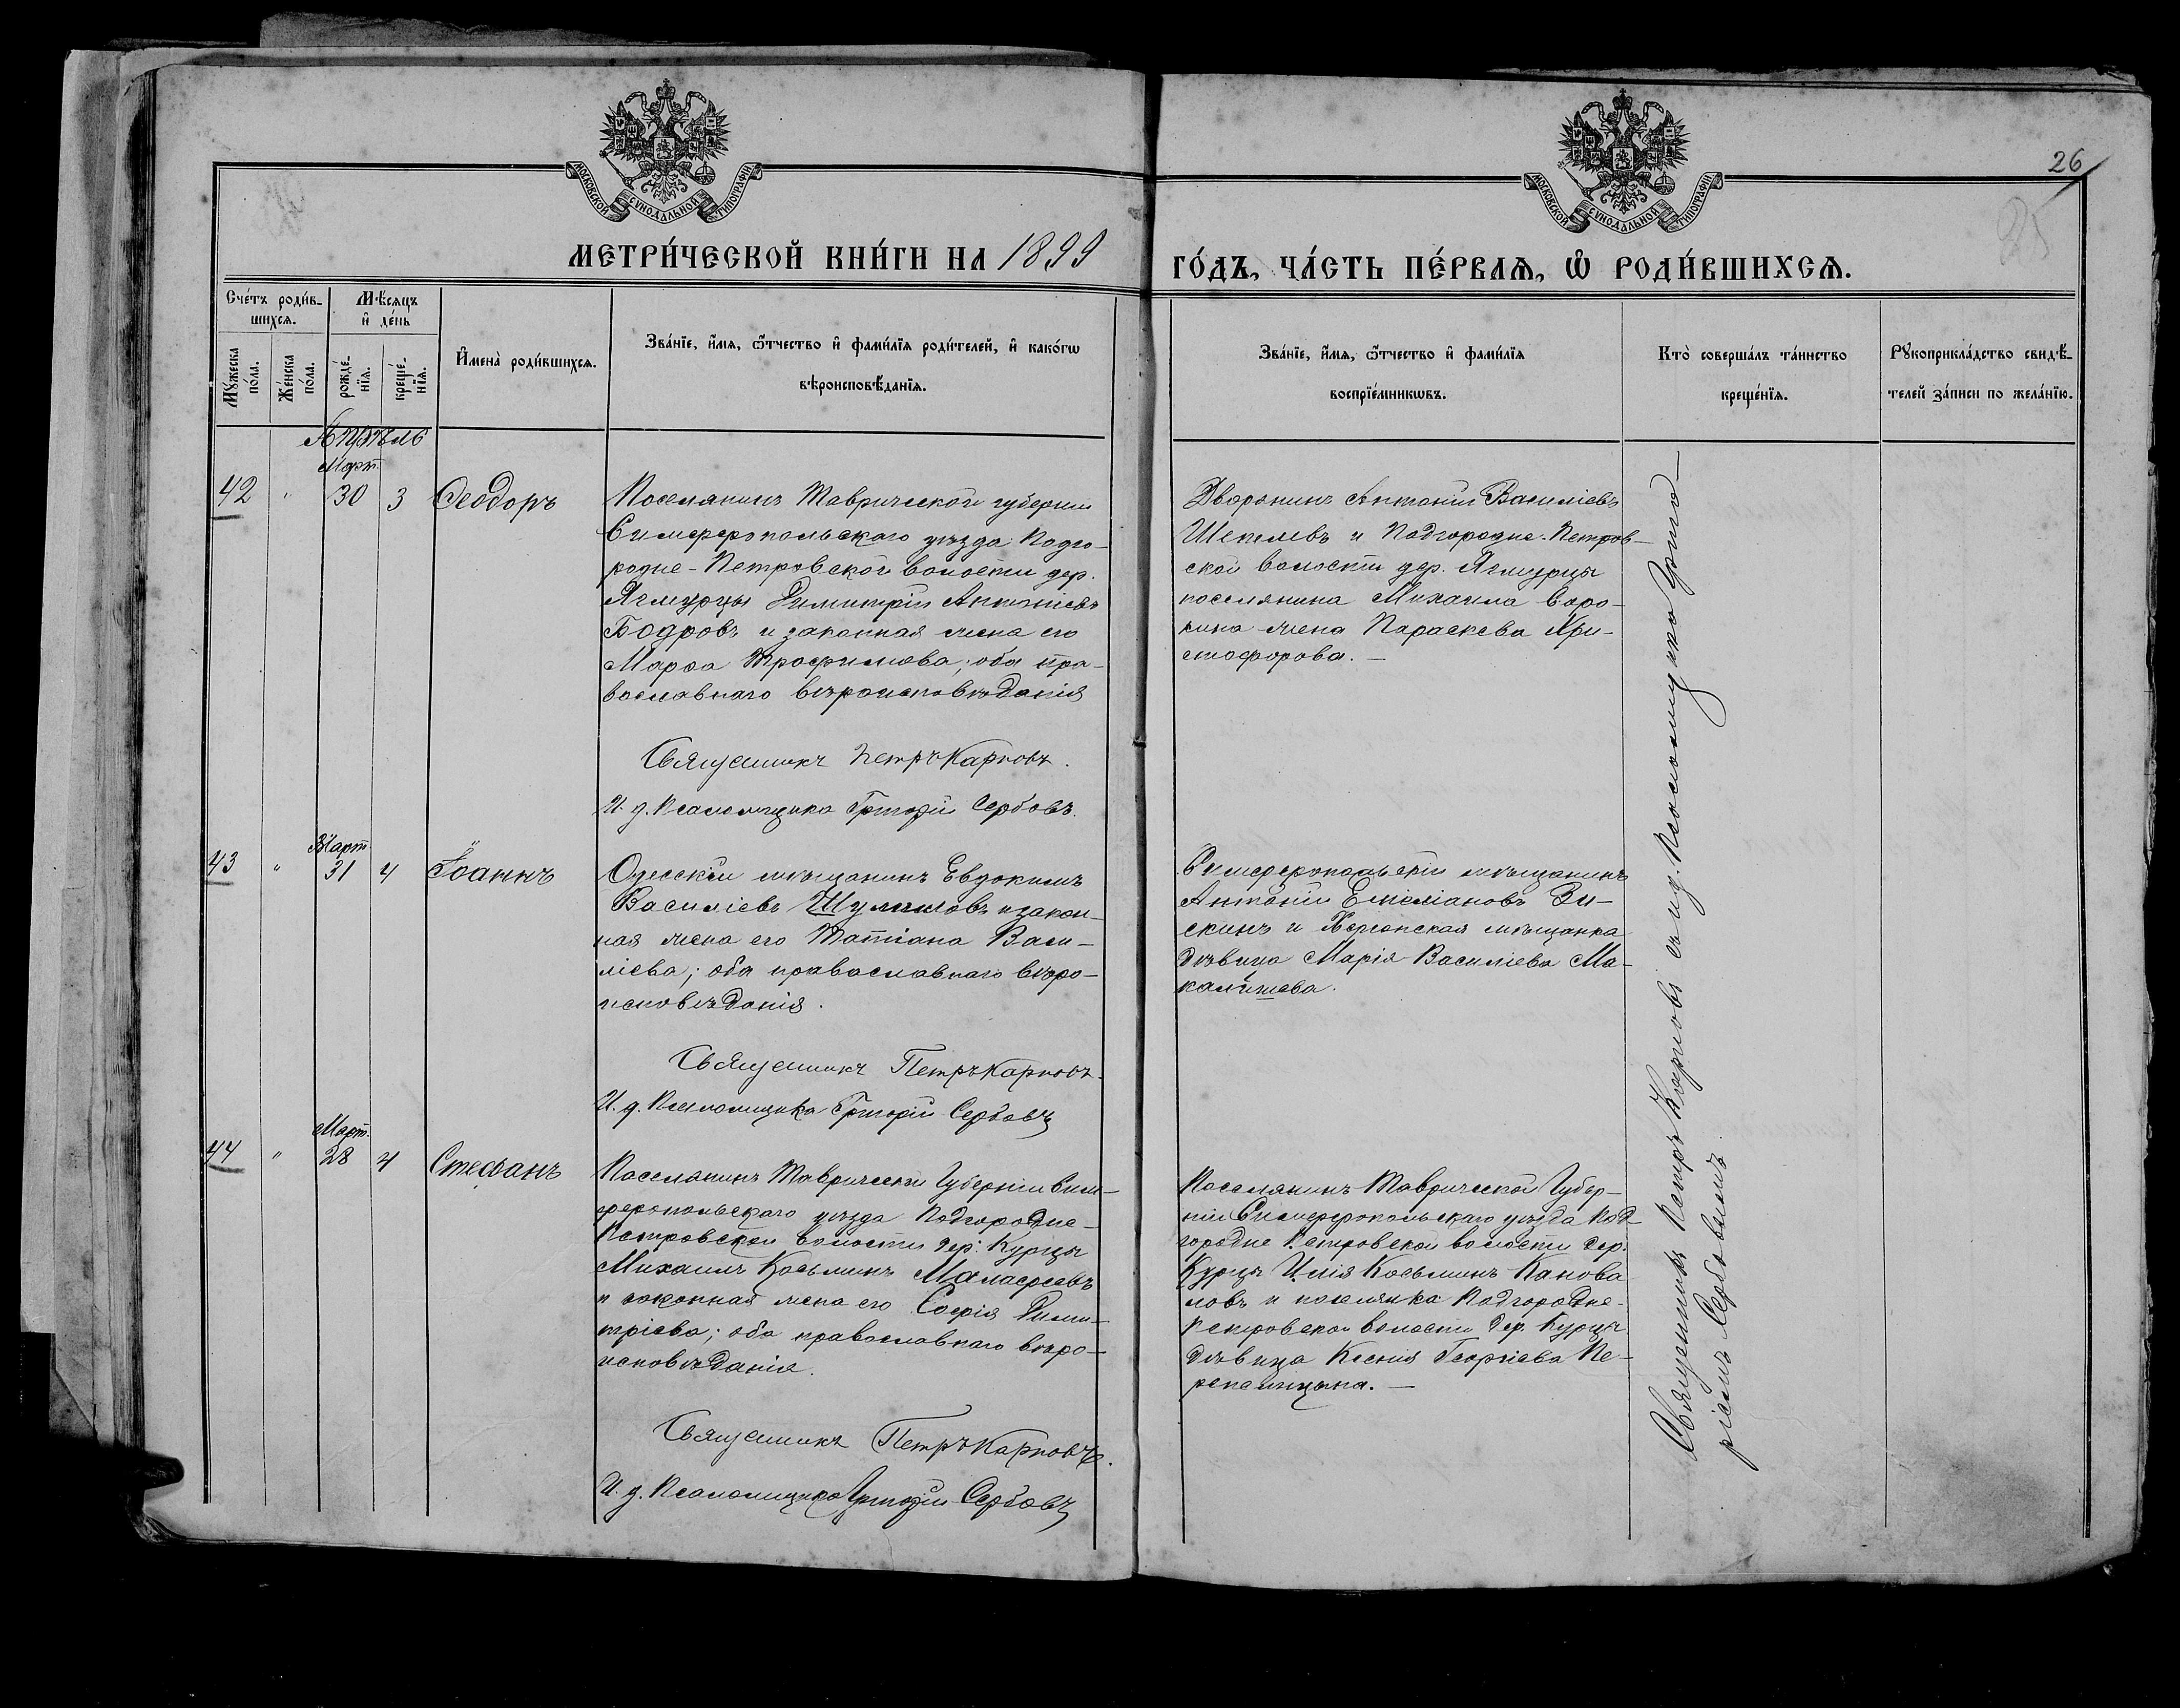 МОСКОВСКОЙ СѴНОДАЛЬНОЙ ТИПОГРАФІИ
МОСКОВСКОЙ СѴНОДАЛЬНОЙ ТИПОГРАФІИ
26
25
МЕТРИ́ЧЕСКОЙ КНИ́ГИ НА 1899
ГО́ДЪ, ЧА́СТЬ ПЕ́РВАѦ, Ѡ҆ РОДИ́ВШИХСѦ.
Сче́тъ роди́в-
шихсѧ.
Мѣ́сѧцъ
и҆ де́нь
Мꙋ́жеска
по́ла.
Же́нска
по́ла.
рожде́-
нїѧ.
креще́-
нїѧ.
И҆мена̀ роди́вшихсѧ.
Зва́нїе, и҆́мѧ, ѻ҆́тчество и҆ фами́лїѧ роди́телей, и҆ како́гѡ
вѣроисповѣ́данїѧ.
Зва́нїе, и҆́мѧ, ѻ҆́тчество и҆ фами́лїѧ
воспрїе́мникѡвъ.
Кто̀ соверша́лъ та́инство
креще́нїѧ.
Рꙋкоприкла́дство свидѣ́-
телей за́писи по жела́нїю.
Апрѣль
Март.
42 " 30 3 Ѳеодоръ
Поселянинъ Таврической губерніи
Симферопольскаго уѣзда Подго-
родне-Петровской волости дер.
Ягмурцы Димитрій Антоніевъ
Бодровъ и законная жена его
Марѳа Трофимова; оба пра-
вославнаго вѣроисповѣданія
Священникъ Петръ Карповъ.
И. д. Псаломщика Григорій Сербовъ.
Дворянинъ Антоній Василіевъ
Шепелевъ и Подгородне-Петров-
ской волости дер. Ягмурцы
поселянина Михаила Соро-
кина жена Параскева Хри-
стофорова. —
Март.
43 " 31 4 Іоаннъ
Одесскій мѣщанинъ Евдокимъ
Василіевъ Шумиловъ и закон-
ная жена его Татіана Васи-
ліева; оба православнаго вѣро-
исповѣданія.
Священникъ Петръ Карповъ.
И. д. Псаломщика Григорій Сербовъ
Симферопольскій мѣщанинъ
Антоній Емеліановъ Зи-
скинъ и Херсонская мѣщанка
дѣвица Марія Василіева Ма-
Март.
44 " 28 4 Стефанъ
Поселянинъ Таврической Губерніи Сим-
феропольскаго уѣзда Подгородне-
Петровской волости дер. Курцы
Михаилъ Косьминъ Малафеевъ
и законная жена его Софія Дими-
тріева; оба православнаго вѣро-
исповѣданія.
Священникъ Петръ Карповъ.
И. д. Псаломщика Григорій Сербовъ
Поселянинъ Таврической Губер-
ніи Симферопольскаго уѣзда Под-
городне Петровской волости дер.
Курцы Илія Косьминъ Конова
ловъ и поселянка Подгородне-
Петровской волости дер. Курцы
дѣвица Ксенія Георгіева Пе-
репелицына. —
Священникъ Петръ Карповъ съ и. д. Псаломщика Григо-
ріемъ Сербовымъ.